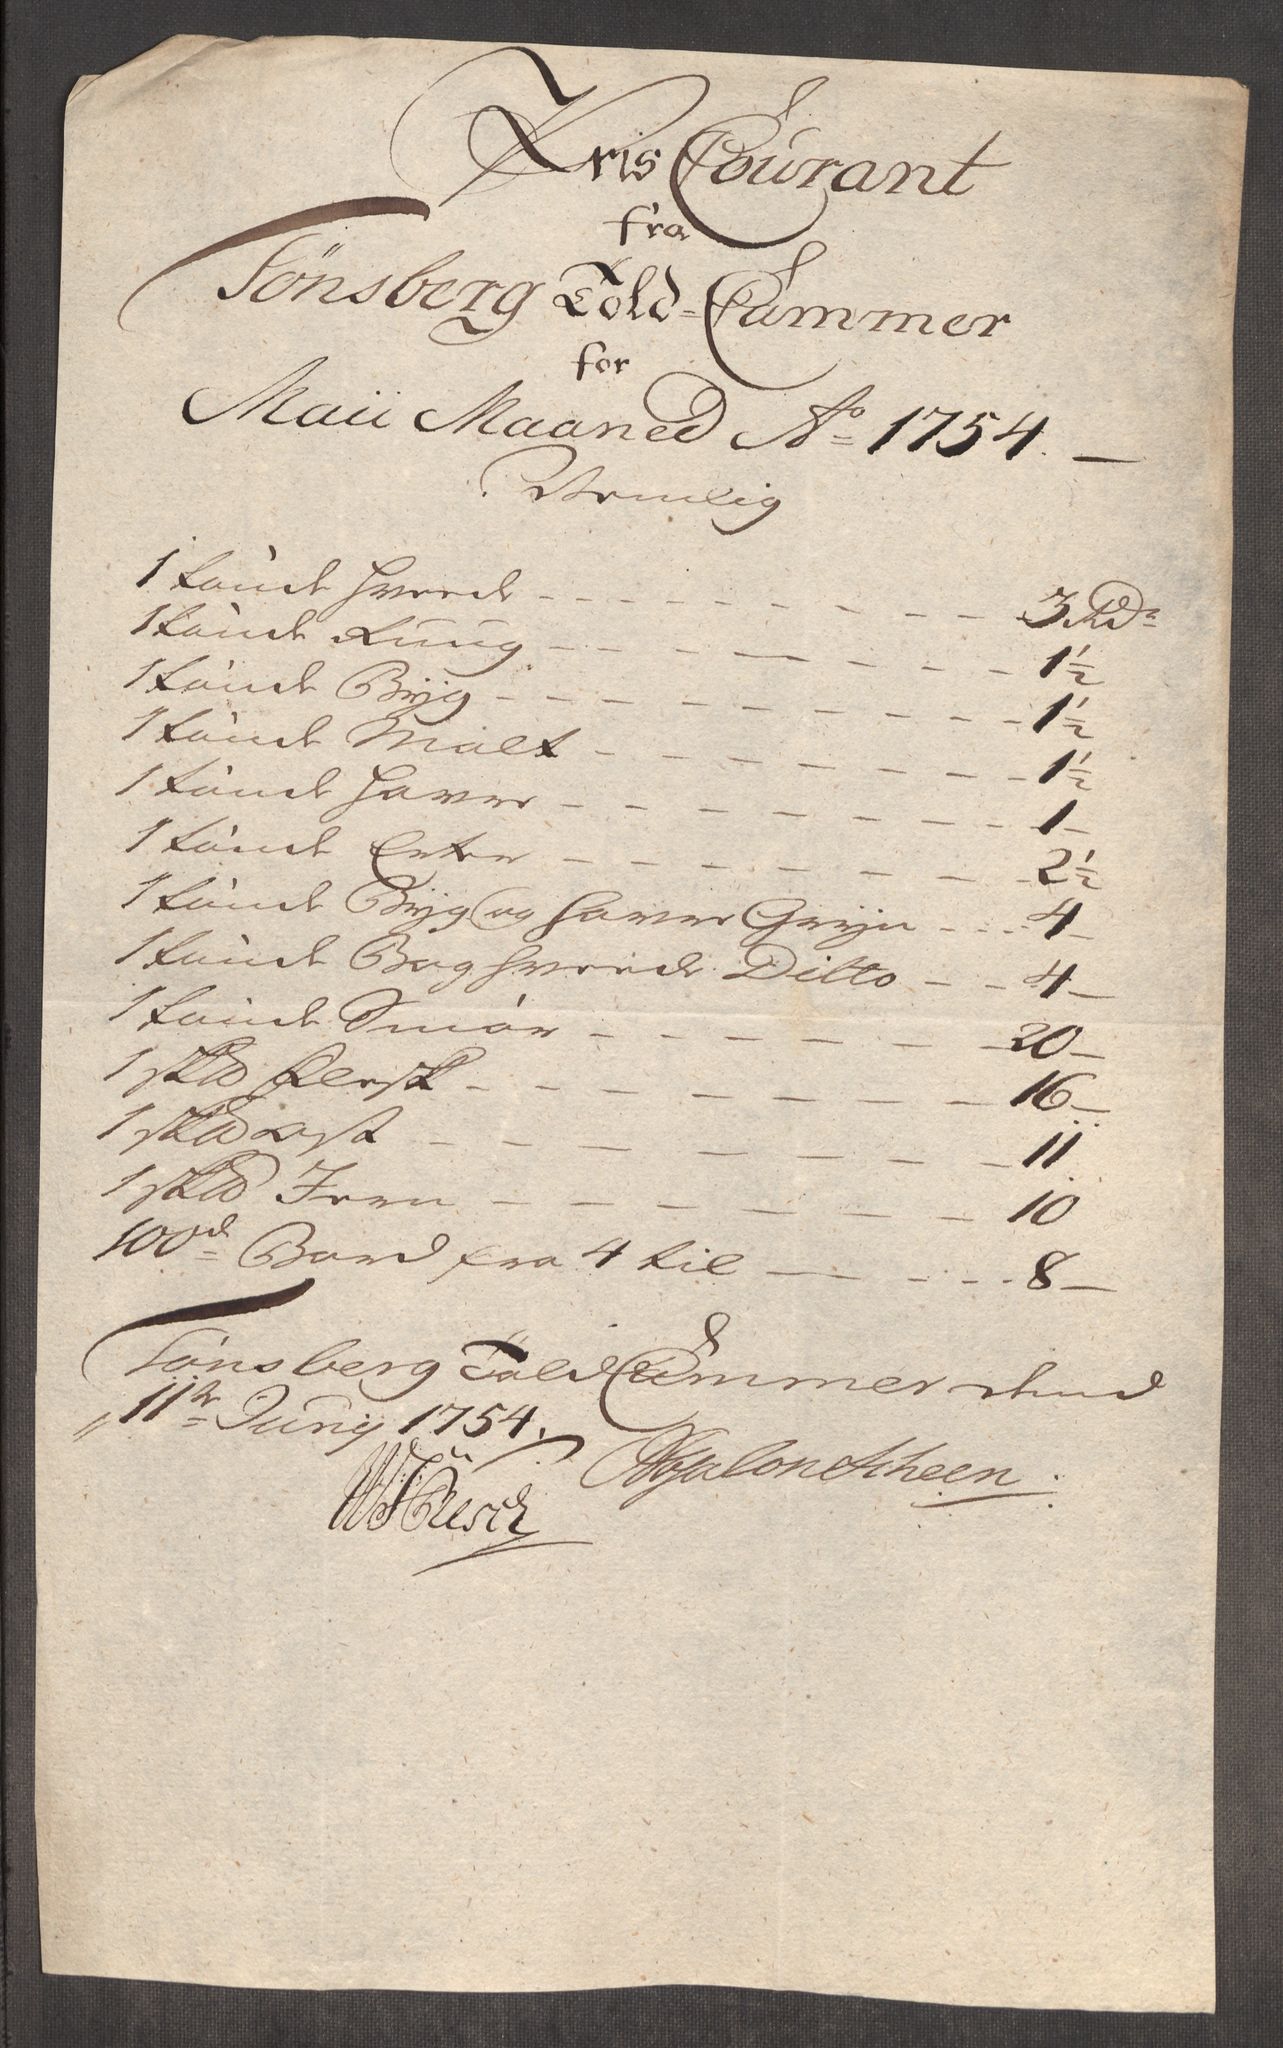 Pris Courant
fra
Tönsberg Told-Cammer
for
Maii Maaned Ao 1754. —
Nemlig
1 tönde Hvede - - - - - - - - 3 Rdr
1 tönde Rüug - - - - - - - - 1½
1 tönde Byg - - - - - - - - - 1½
1 tönde Malt - - - - - - - - 1½
1 tönde Havre - - - - - - - - 1 -
1 tönde Erter - - - - - - - - 2½
1 tönde Byg og Havre Gryn - - - 4 -
1 tönde Boghvede Ditto - - - 4 -
1 tönde Smör - - - - - - - - 20 -
1 sk℔ Flesk - - - - - - - - 16 -
1 sk℔ Ost - - - - - - - - 11
1 sk℔ Jern - - - - - - - - 10
100d Bord fra 4 til - - - - - 8 -
Tönsberg Told Cammer dend
11te Junij 1754.
Absalon Scheen